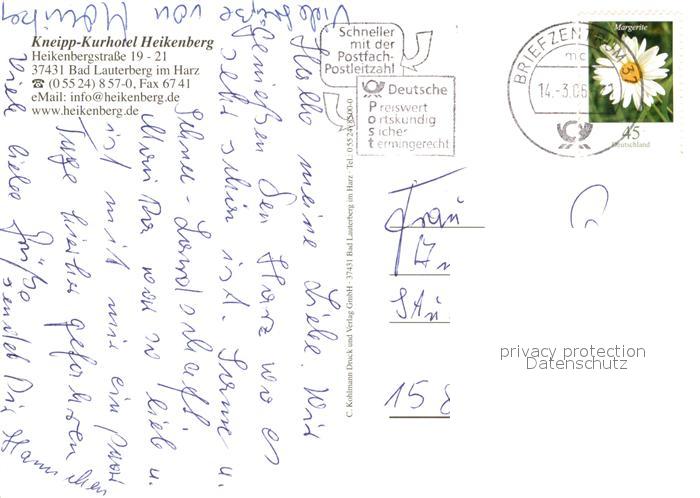 Kneipp-Kurhotel Heikenberg
Heikenbergstraße 19 - 21
37431 Bad Lauterberg im Harz
☎ (0 55 24) 8 57-0, Fax 67 41
eMail: info@heikenberg.de
www.heikenberg.de
Schneller
mit der
Postfach-
Postleitzahl
Deutsche
Preiswert
Ortskundig
Sicher
terningerecht
BRIEFZENTRUM 37
mc
14.-3.06
Margerite
45
Deutschland
C. Kohlmann Druck und Verlag GmbH · 37431 Bad Lauterberg im Harz · Tel.
Hallo meine Liebe. Wir
genießen den Harz wo es
sehr schön ist. Sonne u.
Schnee - Landschaft
Monika war so lieb u.
ist mit mir ein paar
Tage hierher gefahren
Viele liebe Grüße
sendet Dir Hannchen
Viele
Grüße
von
Monika
Frau
15
privacy protection
Datenschutz